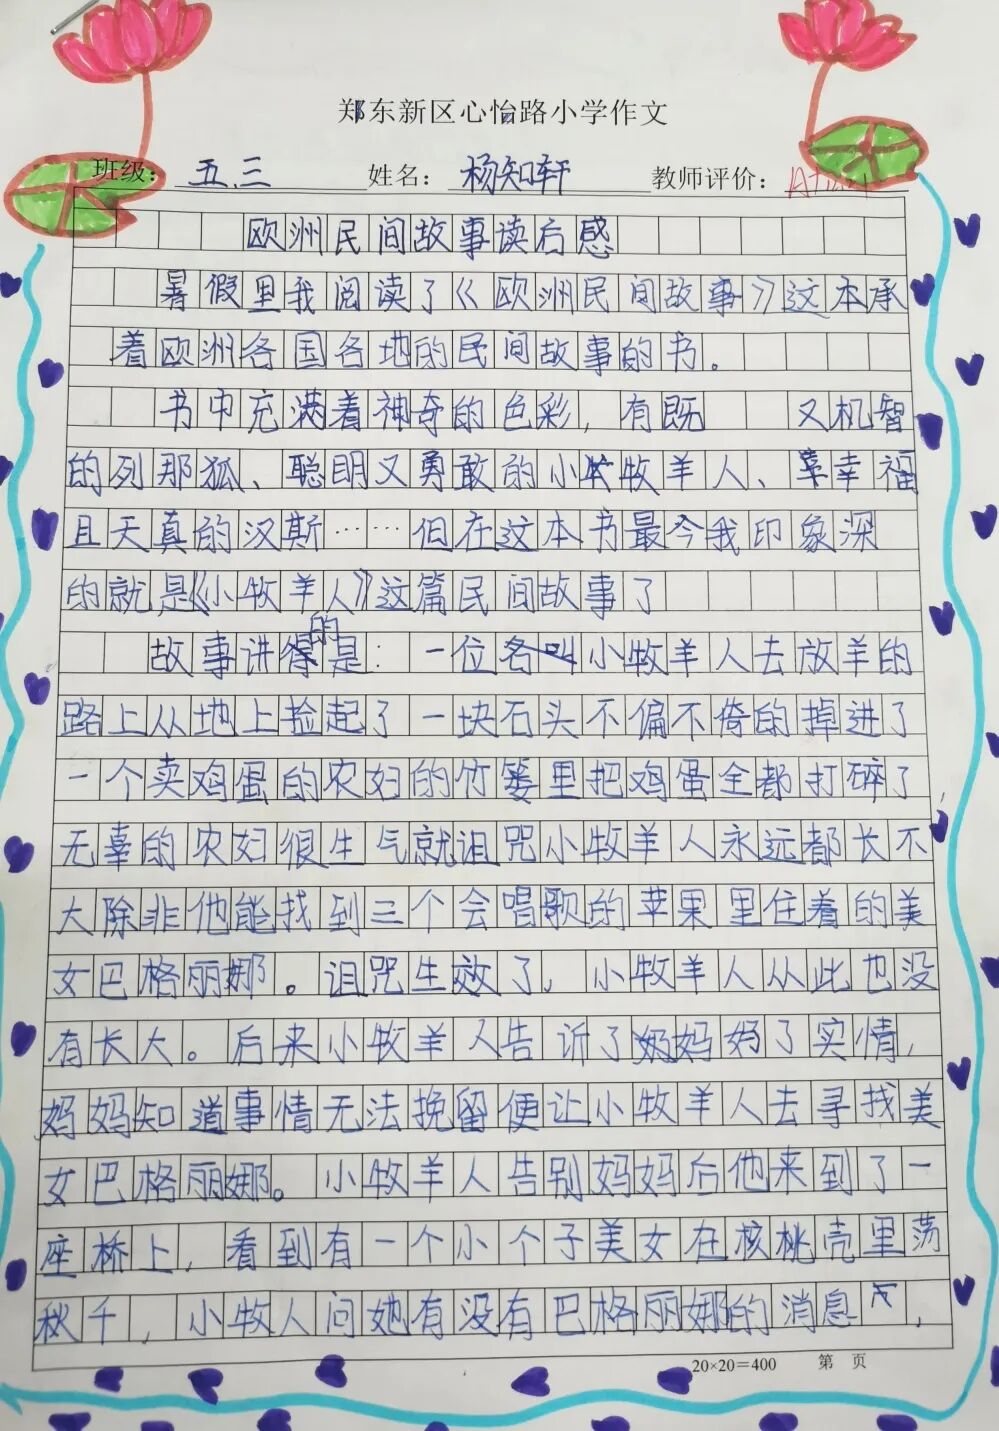 郑东新区心怡路小学作文
班级：五.三 姓名：杨知轩 教师评价：
欧洲民间故事读后感
暑假里我阅读了《欧洲民间故事》这本承
着欧洲各国各地的民间故事的书。
书中充满着神奇的色彩，有既 又机智
的列那狐、聪明又勇敢的小牧羊人、幸福
且天真的汉斯……但在这本书最令我印象深
的就是《小牧羊人》这篇民间故事了
故事讲得的是：一位名叫小牧羊人去放羊的
路上从地上捡起了一块石头不偏不倚的掉进了
一个卖鸡蛋的农妇的竹篓里把鸡蛋全都打碎了
无辜的农妇很生气就诅咒小牧羊人永远都长不
大除非他能找到三个会唱歌的苹果里住着的美
女巴格丽娜。诅咒生效了，小牧羊人从此也没
有长大。后来小牧羊人告诉了妈妈妈了实情，
妈妈知道事情无法挽留便让小牧羊人去寻找美
女巴格丽娜。小牧羊人告别妈妈后他来到了一
座桥上，看到有一个小个子美女在核桃壳里荡
秋千，小牧人问她有没有巴格丽娜的消息，
20×20=400 第 页